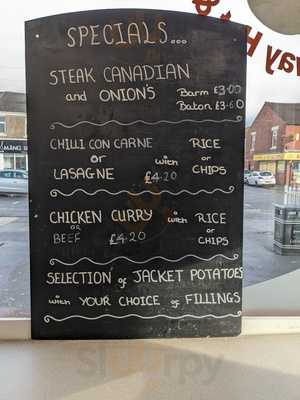 SPECIALS...
STEAK CANADIAN
and ONION'S Barm £3.00
Baton £3.60
CHILLI CON CARNE RICE
or with or
LASAGNE £4.20 CHIPS
CHICKEN CURRY with RICE
or or
BEEF £4.20 CHIPS
SELECTION of JACKET POTATOES
with YOUR CHOICE of FILLINGS
way H
Sluurpy